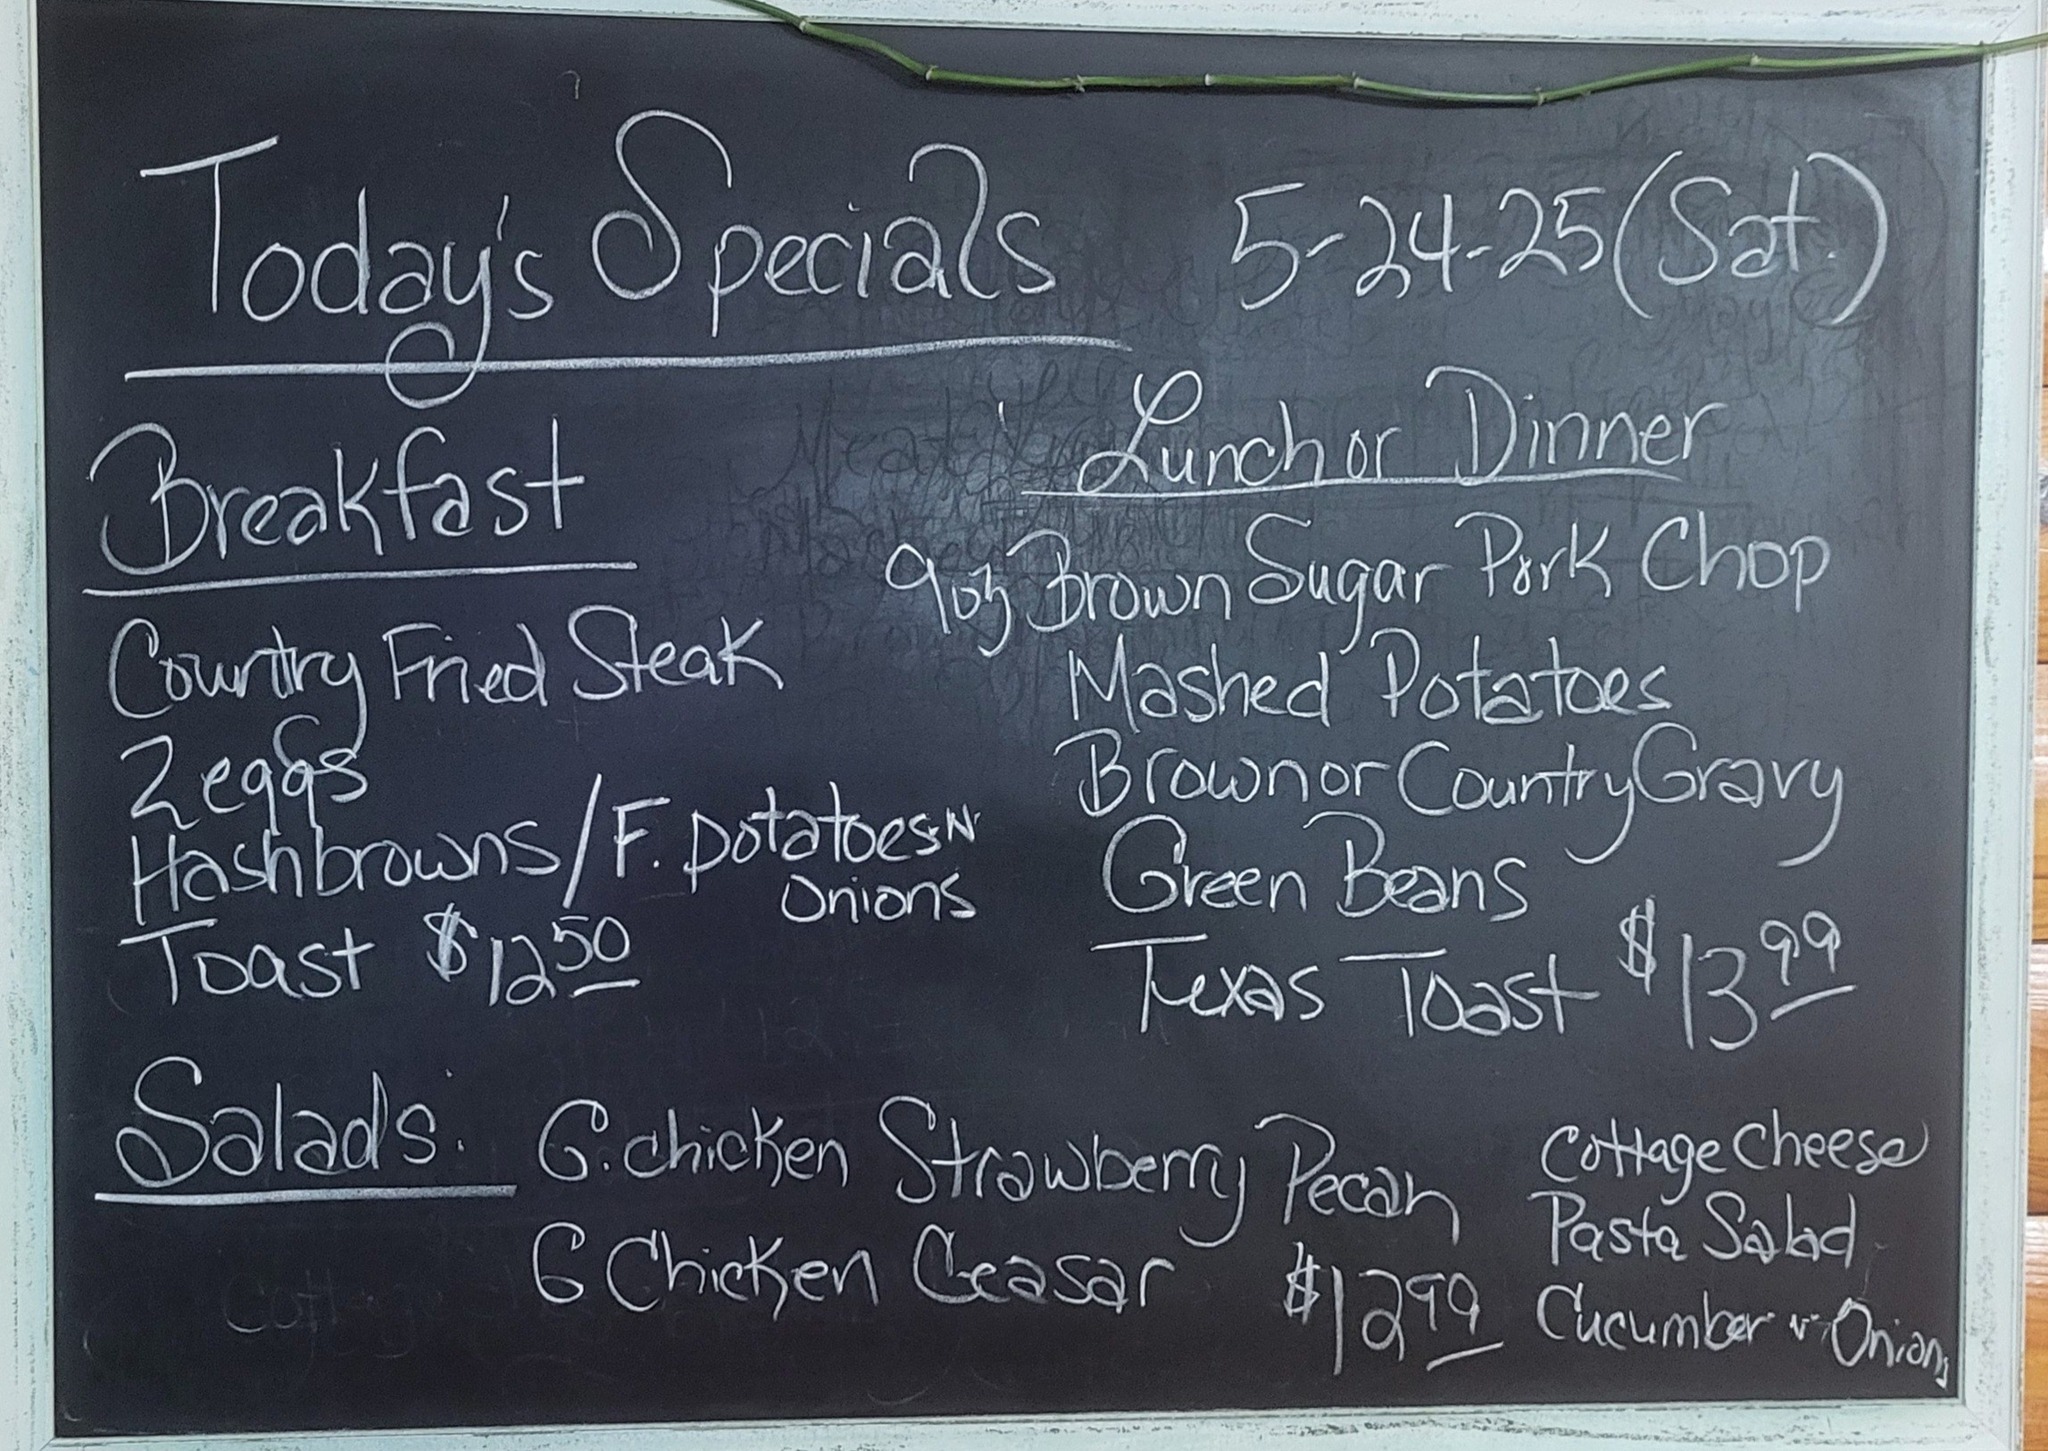 Today's Specials 5-24-25 (Sat.)
Breakfast
Country Fried Steak
2 eggs
Hashbrowns / F. potatoes 'N'
Onions
Toast $12.50
Lunch or Dinner
9oz Brown Sugar Pork Chop
Mashed Potatoes
Brown or Country Gravy
Green Beans
Texas Toast $13.99
Salads:
G. chicken Strawberry Pecan
G Chicken Ceasar $12.99
Cottage Cheese
Pasta Salad
Cucumber 'n' Onions